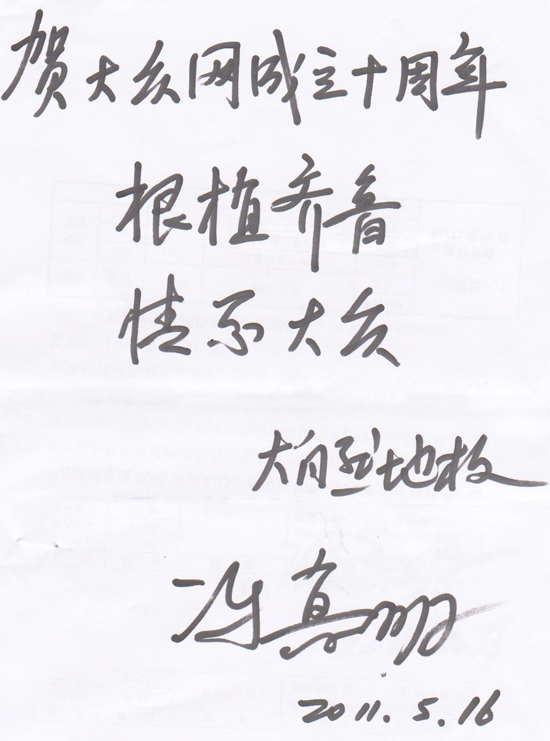 贺大众网成立十周年
根植齐鲁
情系大众
大自然地板
2011.5.16